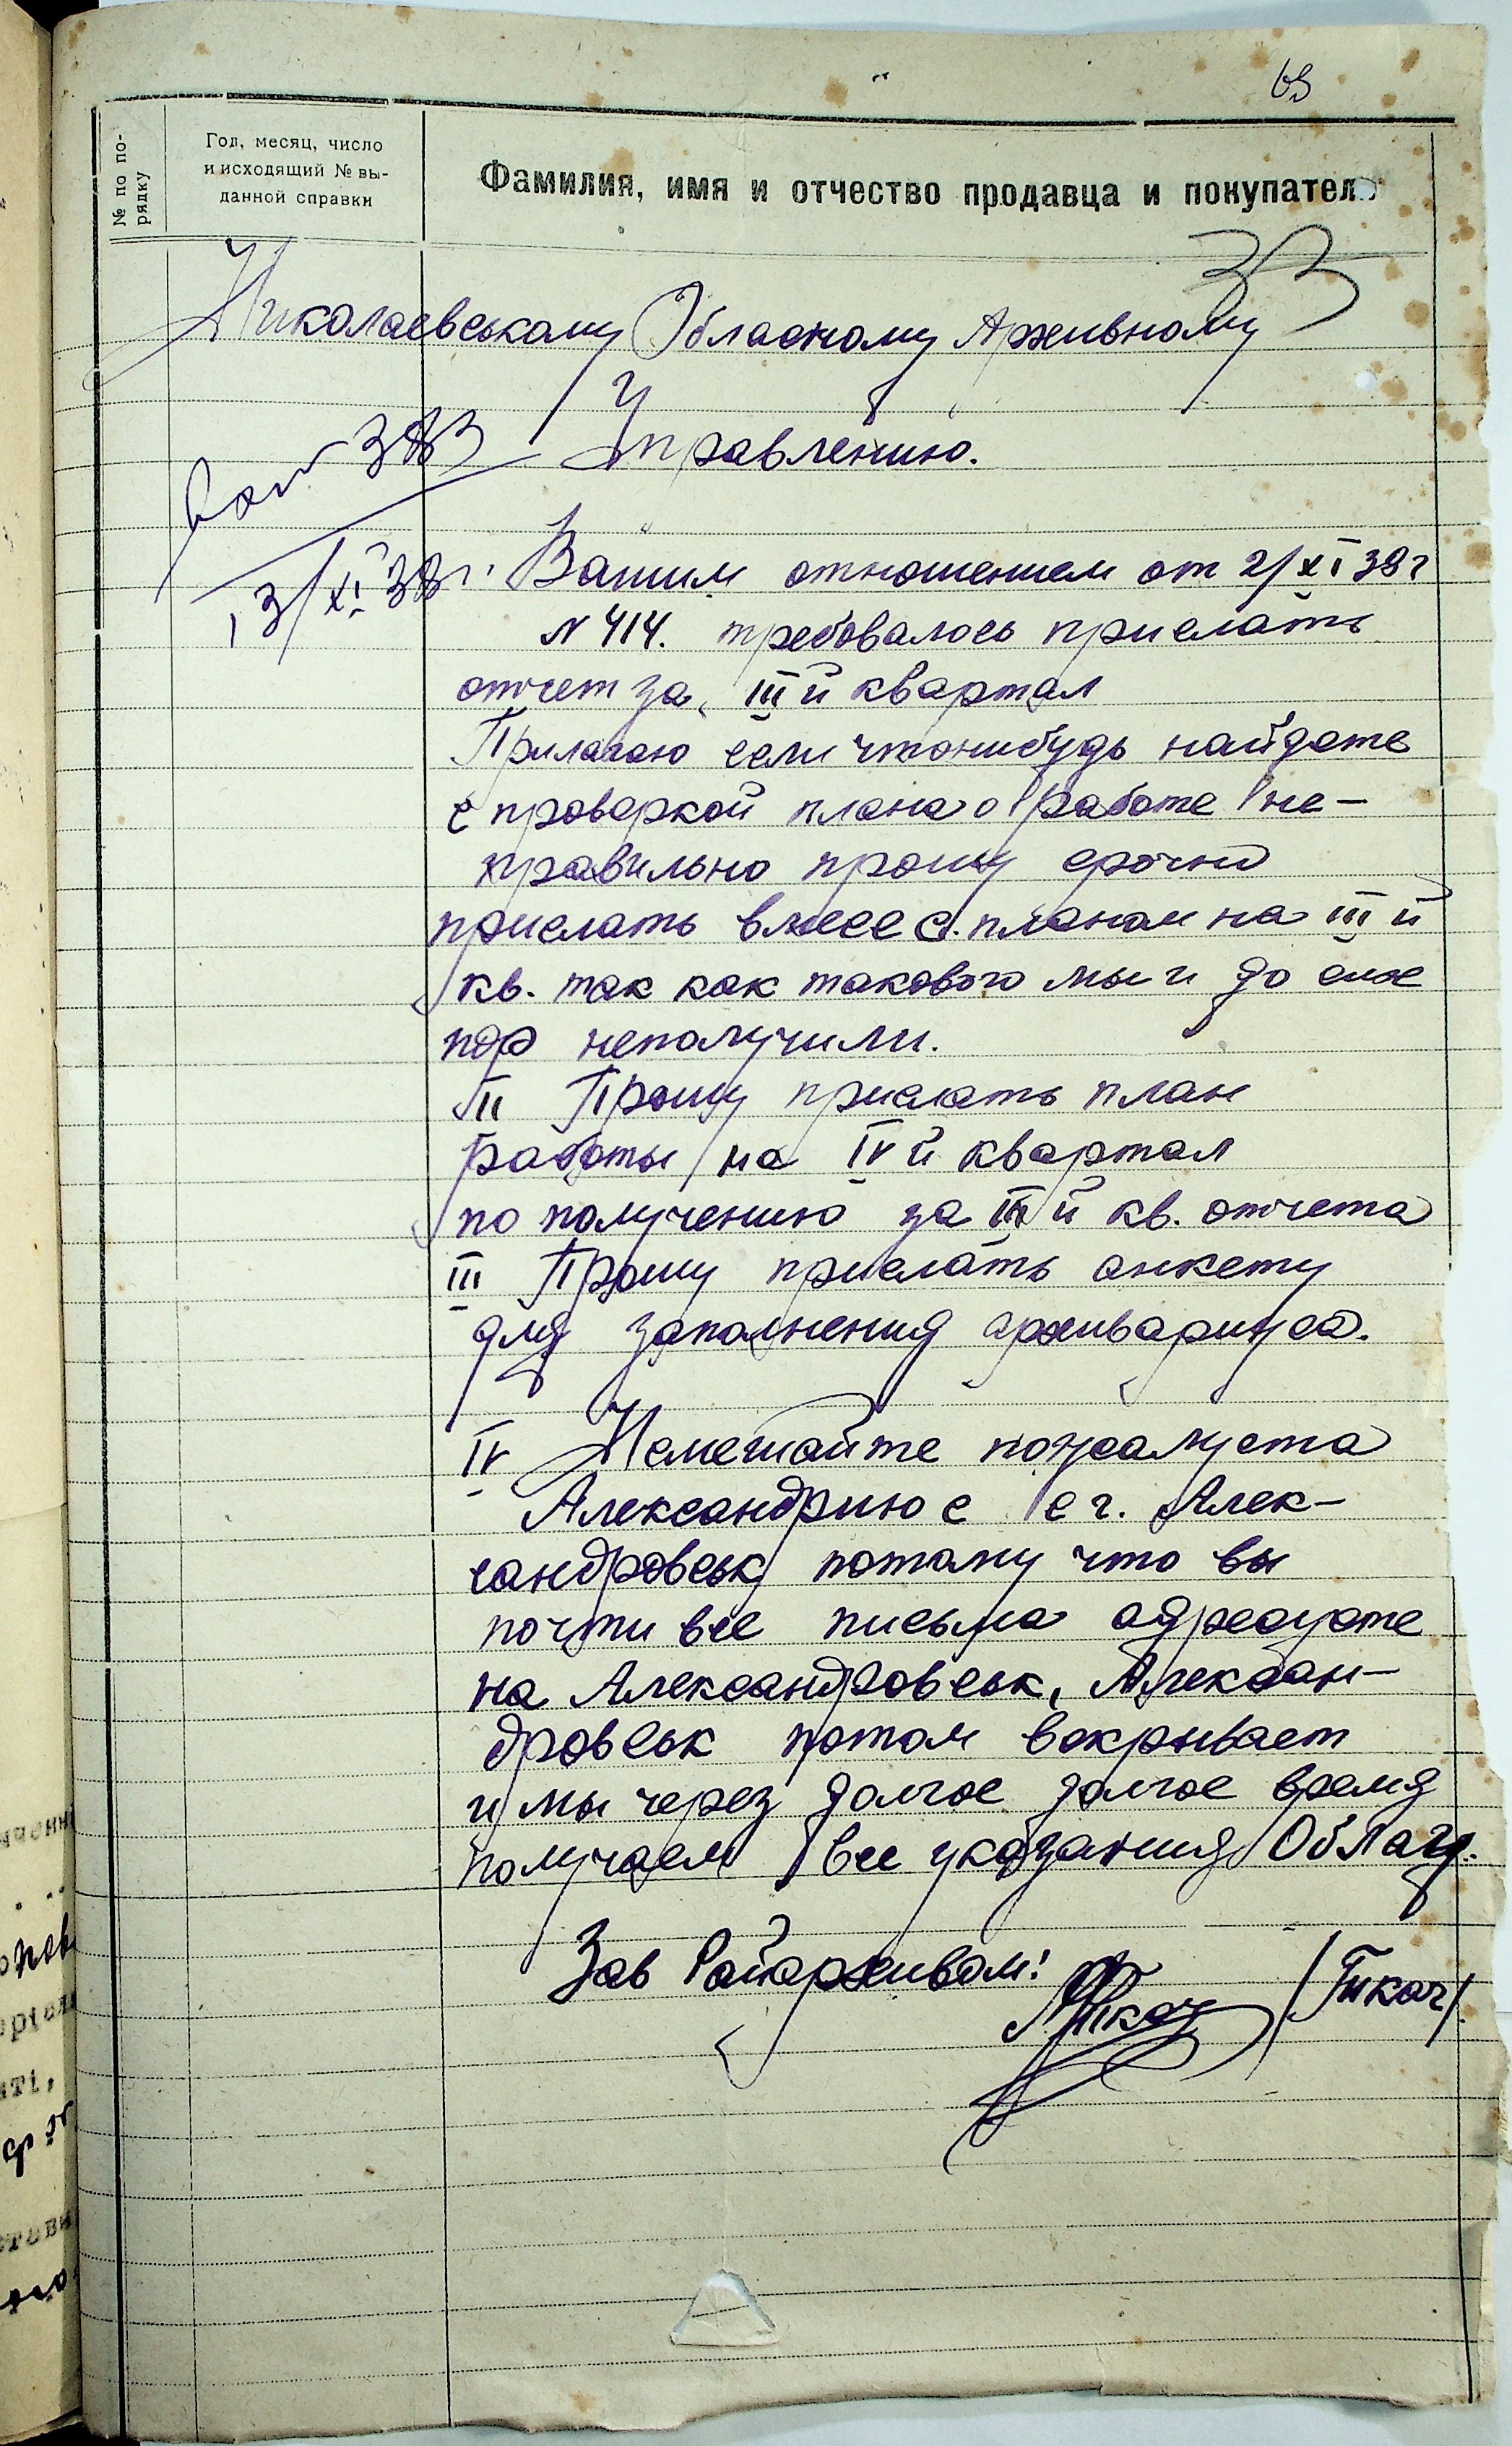 69
№ по по-
рядку
Год, месяц, число
и исходящий № вы-
данной справки
Фамилия, имя и отчество продавца и покупател
33
Николаевському Обласному Архивному
Управлению.
383
13/XI 38 г.
Вашим отношением от 2/XI 38 г
N 414. требовалось прислать
отчет за III й квартал
Прилагаю если чтонибудь найдете
с проверкой плана о работе не-
правильно прошу срочно
прислать вместе с планом на III й
кв. так как такового мы и до сих
пор неполучили.
II Прошу прислать план
работы на IV й квартал
по получению за III й кв. отчета
III Прошу прислать анкету
для заполнения архивариуса.
IV Немешайте пожалуста
Александрию с с г. Алек-
сандровськ потому что вы
почти все письма адресуете
на Александровськ, Алексан-
дровськ потом вскрывает
и мы через долгое долгое время
получаем все указания ОблАУ.
Зав Райархивом:
Ткач /Ткач/.